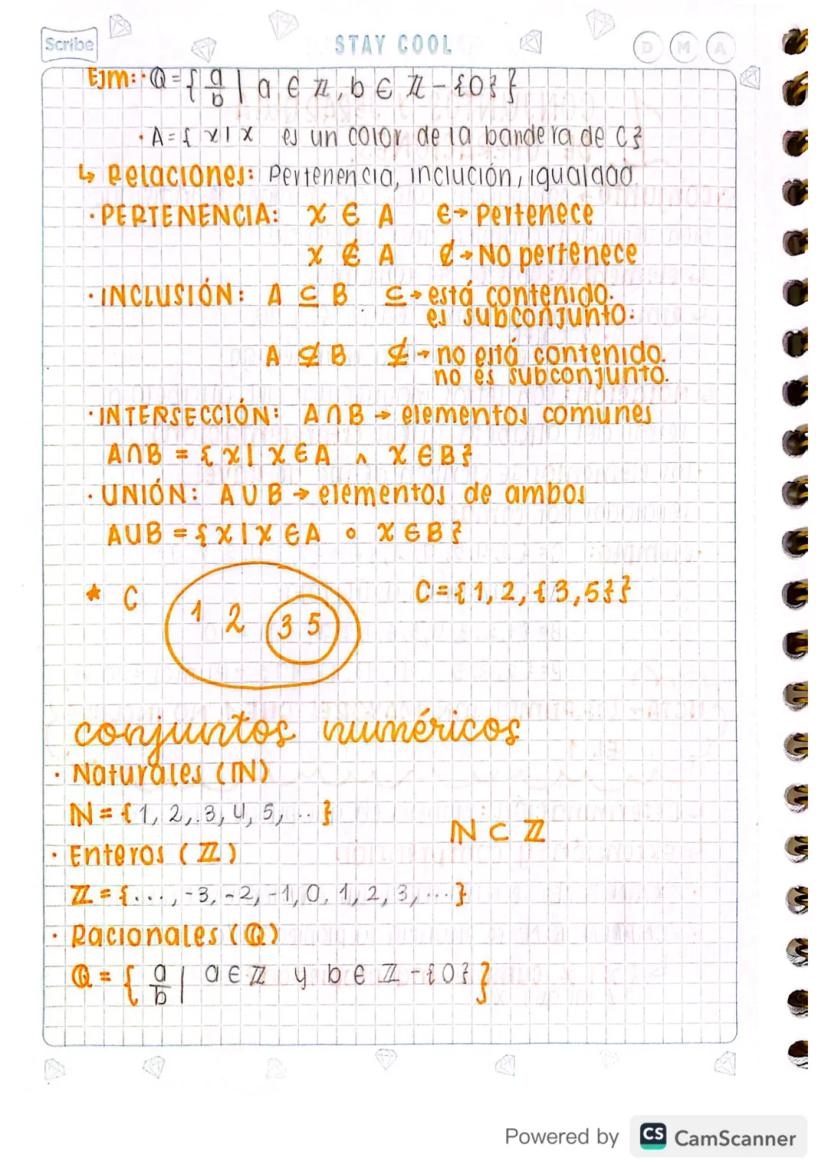 Scribe
STAY COOL
D M A
Ejm: · ℚ = { a/b | a ∈ ℤ, b ∈ ℤ - {0} }
· A = { x | x es un color de la bandera de C }
↳ Relaciones: Pertenencia, inclución, igualdad
· PERTENENCIA: x ∈ A ∈→ Pertenece
x ∉ A ∉→ No pertenece
· INCLUSIÓN: A ⊆ B ⊆→ está contenido.
es subconjunto.
A ⊈ B ⊈→ no está contenido.
no es subconjunto.
· INTERSECCIÓN: A∩B → elementos comunes
A∩B = { x | x ∈ A ∧ x ∈ B }
· UNIÓN: A∪B → elementos de ambos
A∪B = { x | x ∈ A o x ∈ B }
* C 1 2 3 5 C = {1, 2, {3, 5}}
conjuntos numéricos
· Naturales (ℕ)
ℕ = {1, 2, 3, 4, 5, ...}
ℕ ⊂ ℤ
· Enteros (ℤ)
ℤ = {..., -3, -2, -1, 0, 1, 2, 3, ...}
· Racionales (ℚ)
ℚ = { a/b | a ∈ ℤ y b ∈ ℤ - {0} }
Powered by CS CamScanner